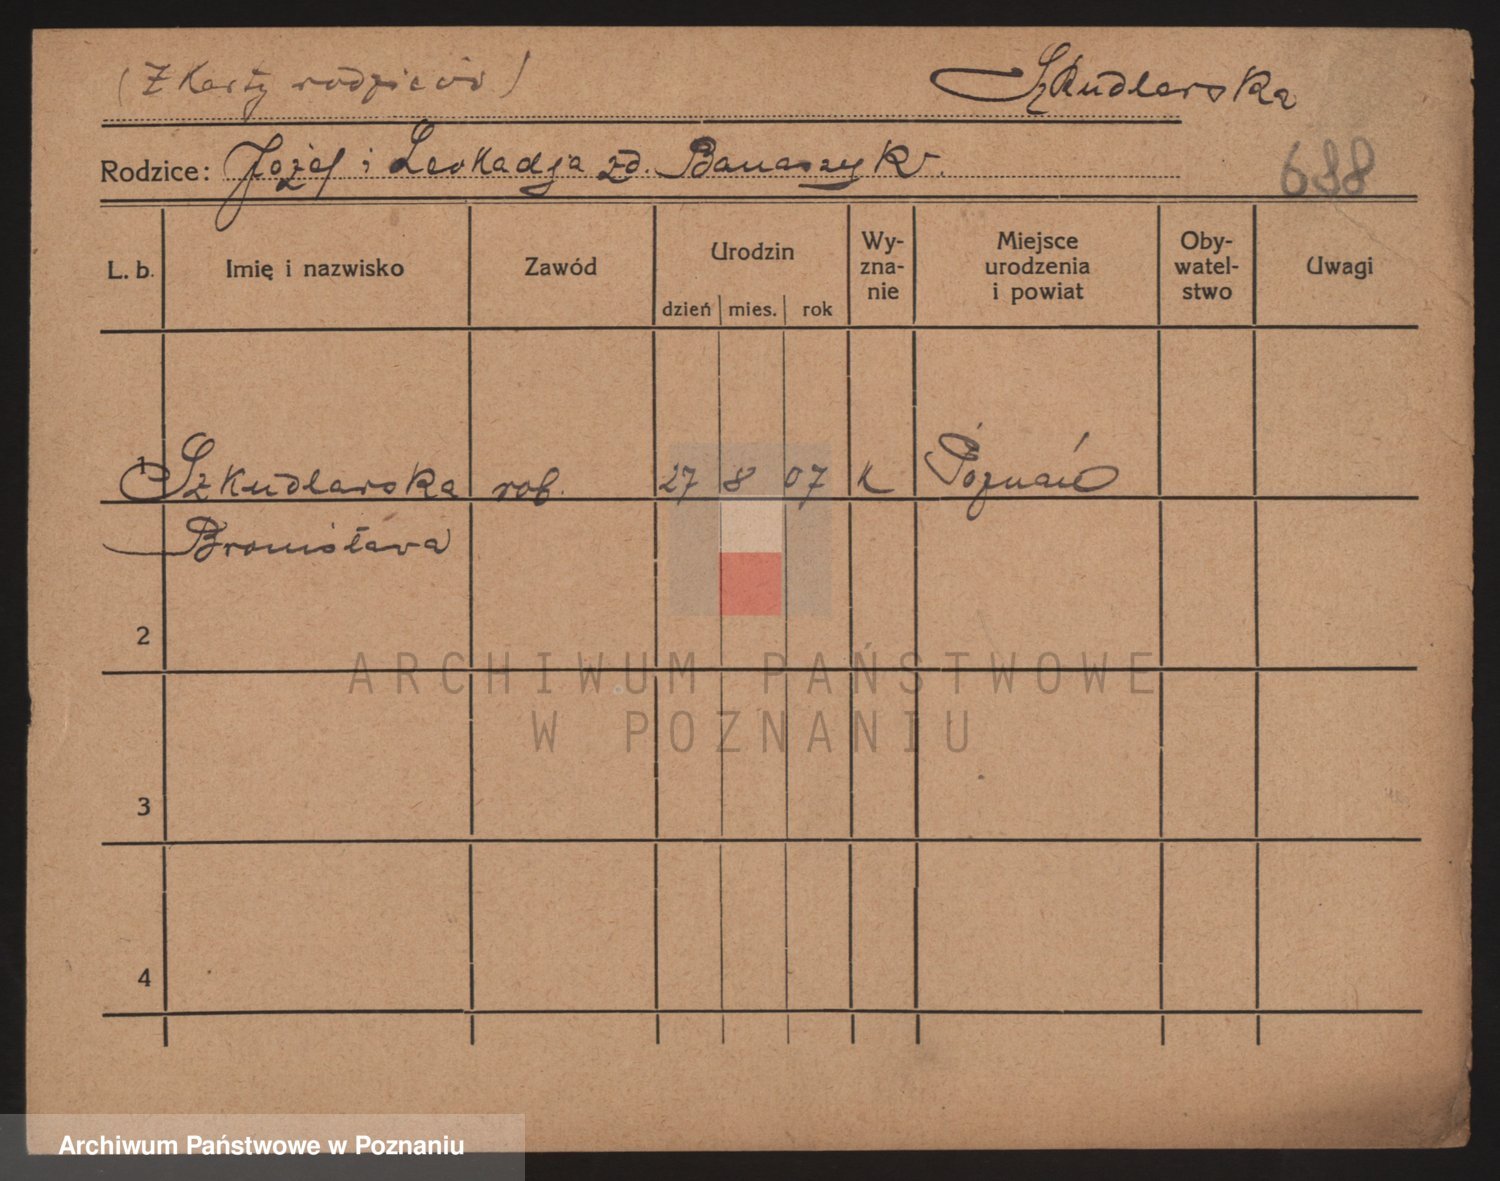 (Z Karty rodziców) Szkudlarska
Rodzice: Józef i Leokadja zd. Banaszyk. 688
L. b. Imię i nazwisko Zawód Urodzin dzień mies. rok Wy-zna-nie Miejsce urodzenia i powiat Oby-watel-stwo Uwagi
1 Szkudlarska rob. 27 8 07 K Poznań
Bronisława
2
ARCHIWUM PAŃSTWOWE
W POZNANIU
3
4
Archiwum Państwowe w Poznaniu